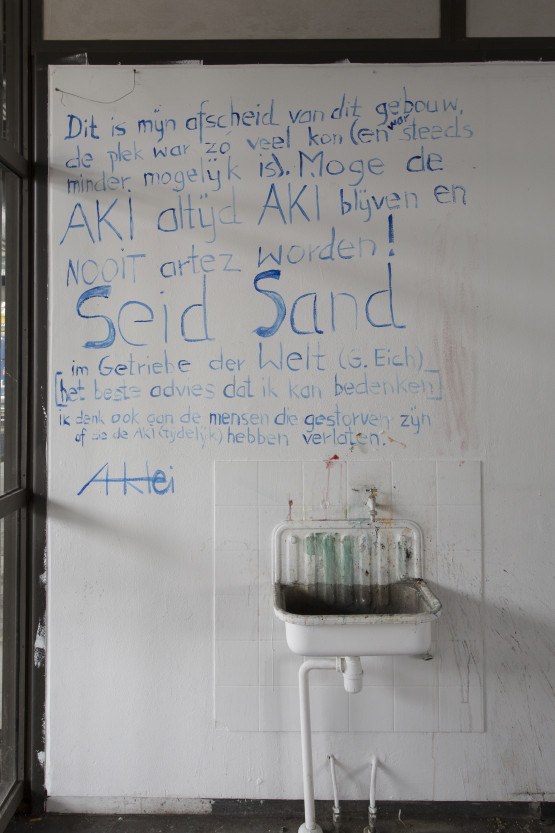 Dit is mijn afscheid van dit gebouw,
de plek war zó veel kon (en war steeds
minder mogelijk is). Moge de
AKI altijd AKI blijven en
NOOIT artez worden!
Seid Sand
im Getriebe der Welt (G. Eich)
[het beste advies dat ik kan bedenken]
ik denk ook aan de mensen die gestorven zijn
of die de AKI (tijdelijk) hebben verlaten.
AKlei